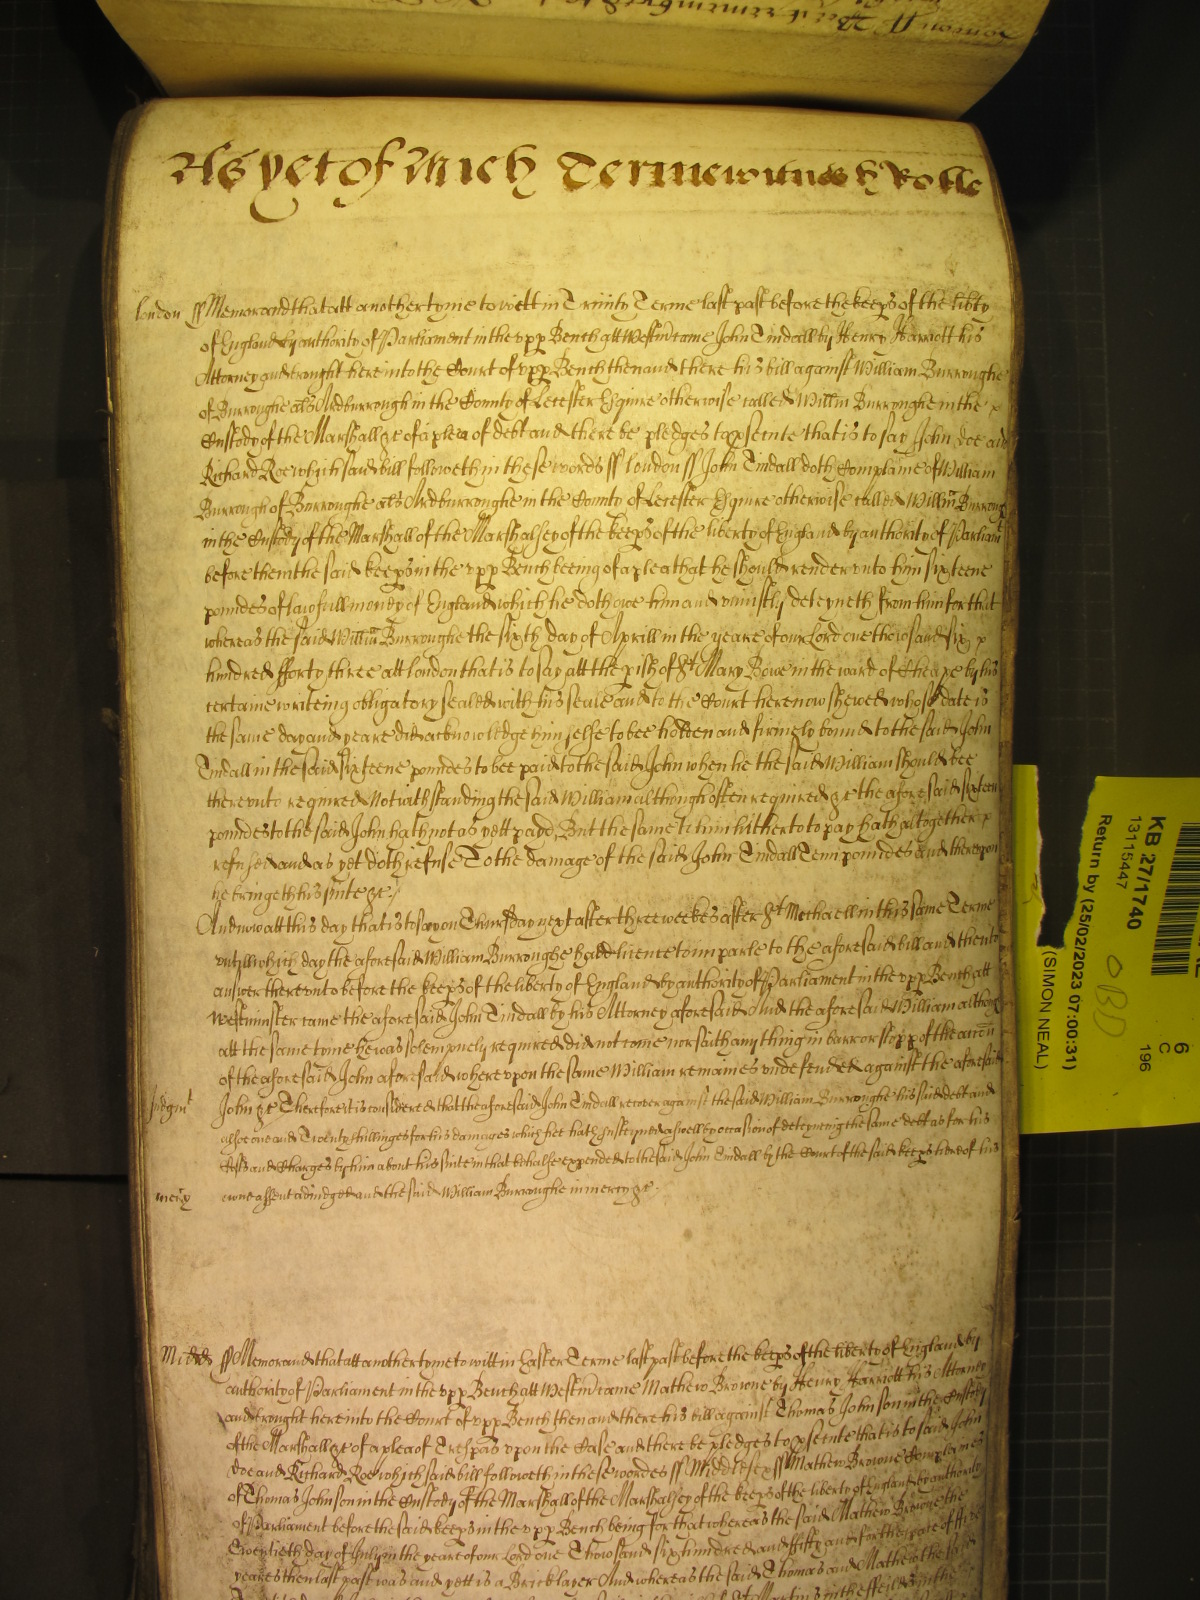 As yet of Mich Terme witnes H Rolle
london ss Memorand that att another tyme to witt in Trinity Terme last past before the keeps of the libty
of England by authority of Parliament in the upp Bench att Westm came John Tindall by Henry Harriott his
Attorney and brought here into the Court of upp Bench then and there his bill against William Burroughe
of Burroughe als Ardburrough in the County of Leicester Esquire otherwise called Willm Burroughe in the
Custody of the Marshall &c of a plea of debt and there be pledges to psecute that is to say John Doe and
Richard Roe which said bill followeth in these words ss london ss John Tindall doth Complaine of William
Burrough of Burroughe als Ardburroughe in the County of Leicester Esquire otherwise called Willm Burroughe
in the Custody of the Marshall of the Marshalsey of the keeps of the liberty of England by authority of Parliamt
before them the said keeps in the upp Bench beeing of a plea that he should render unto him sixteene
poundes of lawfull money of England which he doth owe him and uniustly deteyneth from him for that
whereas the said Willm Burroughe the sixth day of Aprill in the yeare of our Lord one thowsand six
hundred fforty three att london that is to say att the pish of St Mary Bowe in the ward of Cheape by his
certaine writeing obligatory sealed with his seale and to the Court here now shewed whose date is
the same day and yeare did acknowledge himselfe to bee holden and firmely bound to the said John
Tindall in the said sixteene poundes to bee paid to the said John when he the said William should bee
thereunto required Notwithstanding the said William although often required &c the aforesaid sixteen
poundes to the said John hath not as yett payd But the same to him hitherto to pay hath altogether
refused and as yet doth refuse To the damage of the said John Tindall Tenn poundes and thereupon
he bringeth his suite &c
And now att this day that is to say on Thursday next after three weekes after St Michaell in this same Terme
untill which day the aforesaid William Burroughe hadd licence to imparle to the aforesaid bill and then to
answer thereunto before the keeps of the liberty of England by authority of Parliament in the upp Bench att
Westminster came the aforesaid John Tindall by his Attorney aforesaid And the aforesaid William although
att the same tyme he was solempnely required did not come nor saith any thing in barr or stopp of the accon
of the aforesaid John aforesaid whereupon the same William remaines undefended against the aforesaid
Judgmt John &c Therefore it is considered that the aforesaid John Tindall recover against the said William Burroughe his said debt and
alsoe one and Twenty shillinges for his damages which hee hath susteyned aswell by occasion of deteyneing the same debt as for his
Costs and Charges by him about his suite in that behalfe expended to the said John Tindall by the Court of the said keeps here of his
mercy owne assent adiudged and the said William Burroughe in mercy &c
Midds ss Memorand that att another tyme to witt in Easter Terme last past before the keeps of the liberty of England by
authority of Parliament in the upp Bench att Westm came Mathew Browne by Henry Harriott his Attorney
and brought here into the Court of upp Bench then and there his bill against Thomas Johnson in the Custody
of the Marshall &c of a plea of Trespas upon the Case and there be pledges to psecute that is to said John
Doe and Richard Roe which said bill followeth in these wordes ss Middlesex ss Mathew Browne Complaines
of Thomas Johnson in the Custody of the Marshall of the Marshalsey of the keeps of the liberty of England by authority
of Parliament before the said keeps in the upp Bench being for that whereas the said Mathew Browne the
Twentieth day of July in the yeare of our Lord one Thowsand six hundred and ffifty and for the space of ffive
yeares then last past was and yett is a Bricklayer And whereas the said Thomas and Mathew the said
Martins in the ffeildes in the
KB 27/1740
13115447
Return by (25/02/2023 07:00:31)
(SIMON NEAL)
OBD
6
C
196